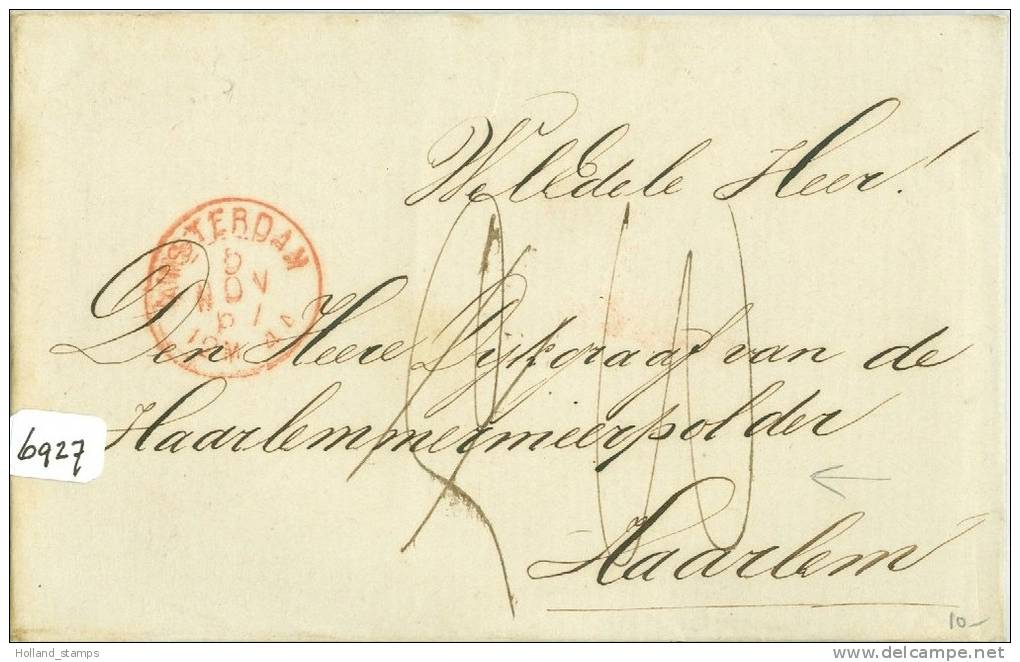 WelEdele Heer!
AMSTERDAM
8
NOV
61
Den Heere Dijkgraaf van de
Haarlemmermeerpolder
6927
Haarlem
10-
Holland_stamps
www.delcampe.net